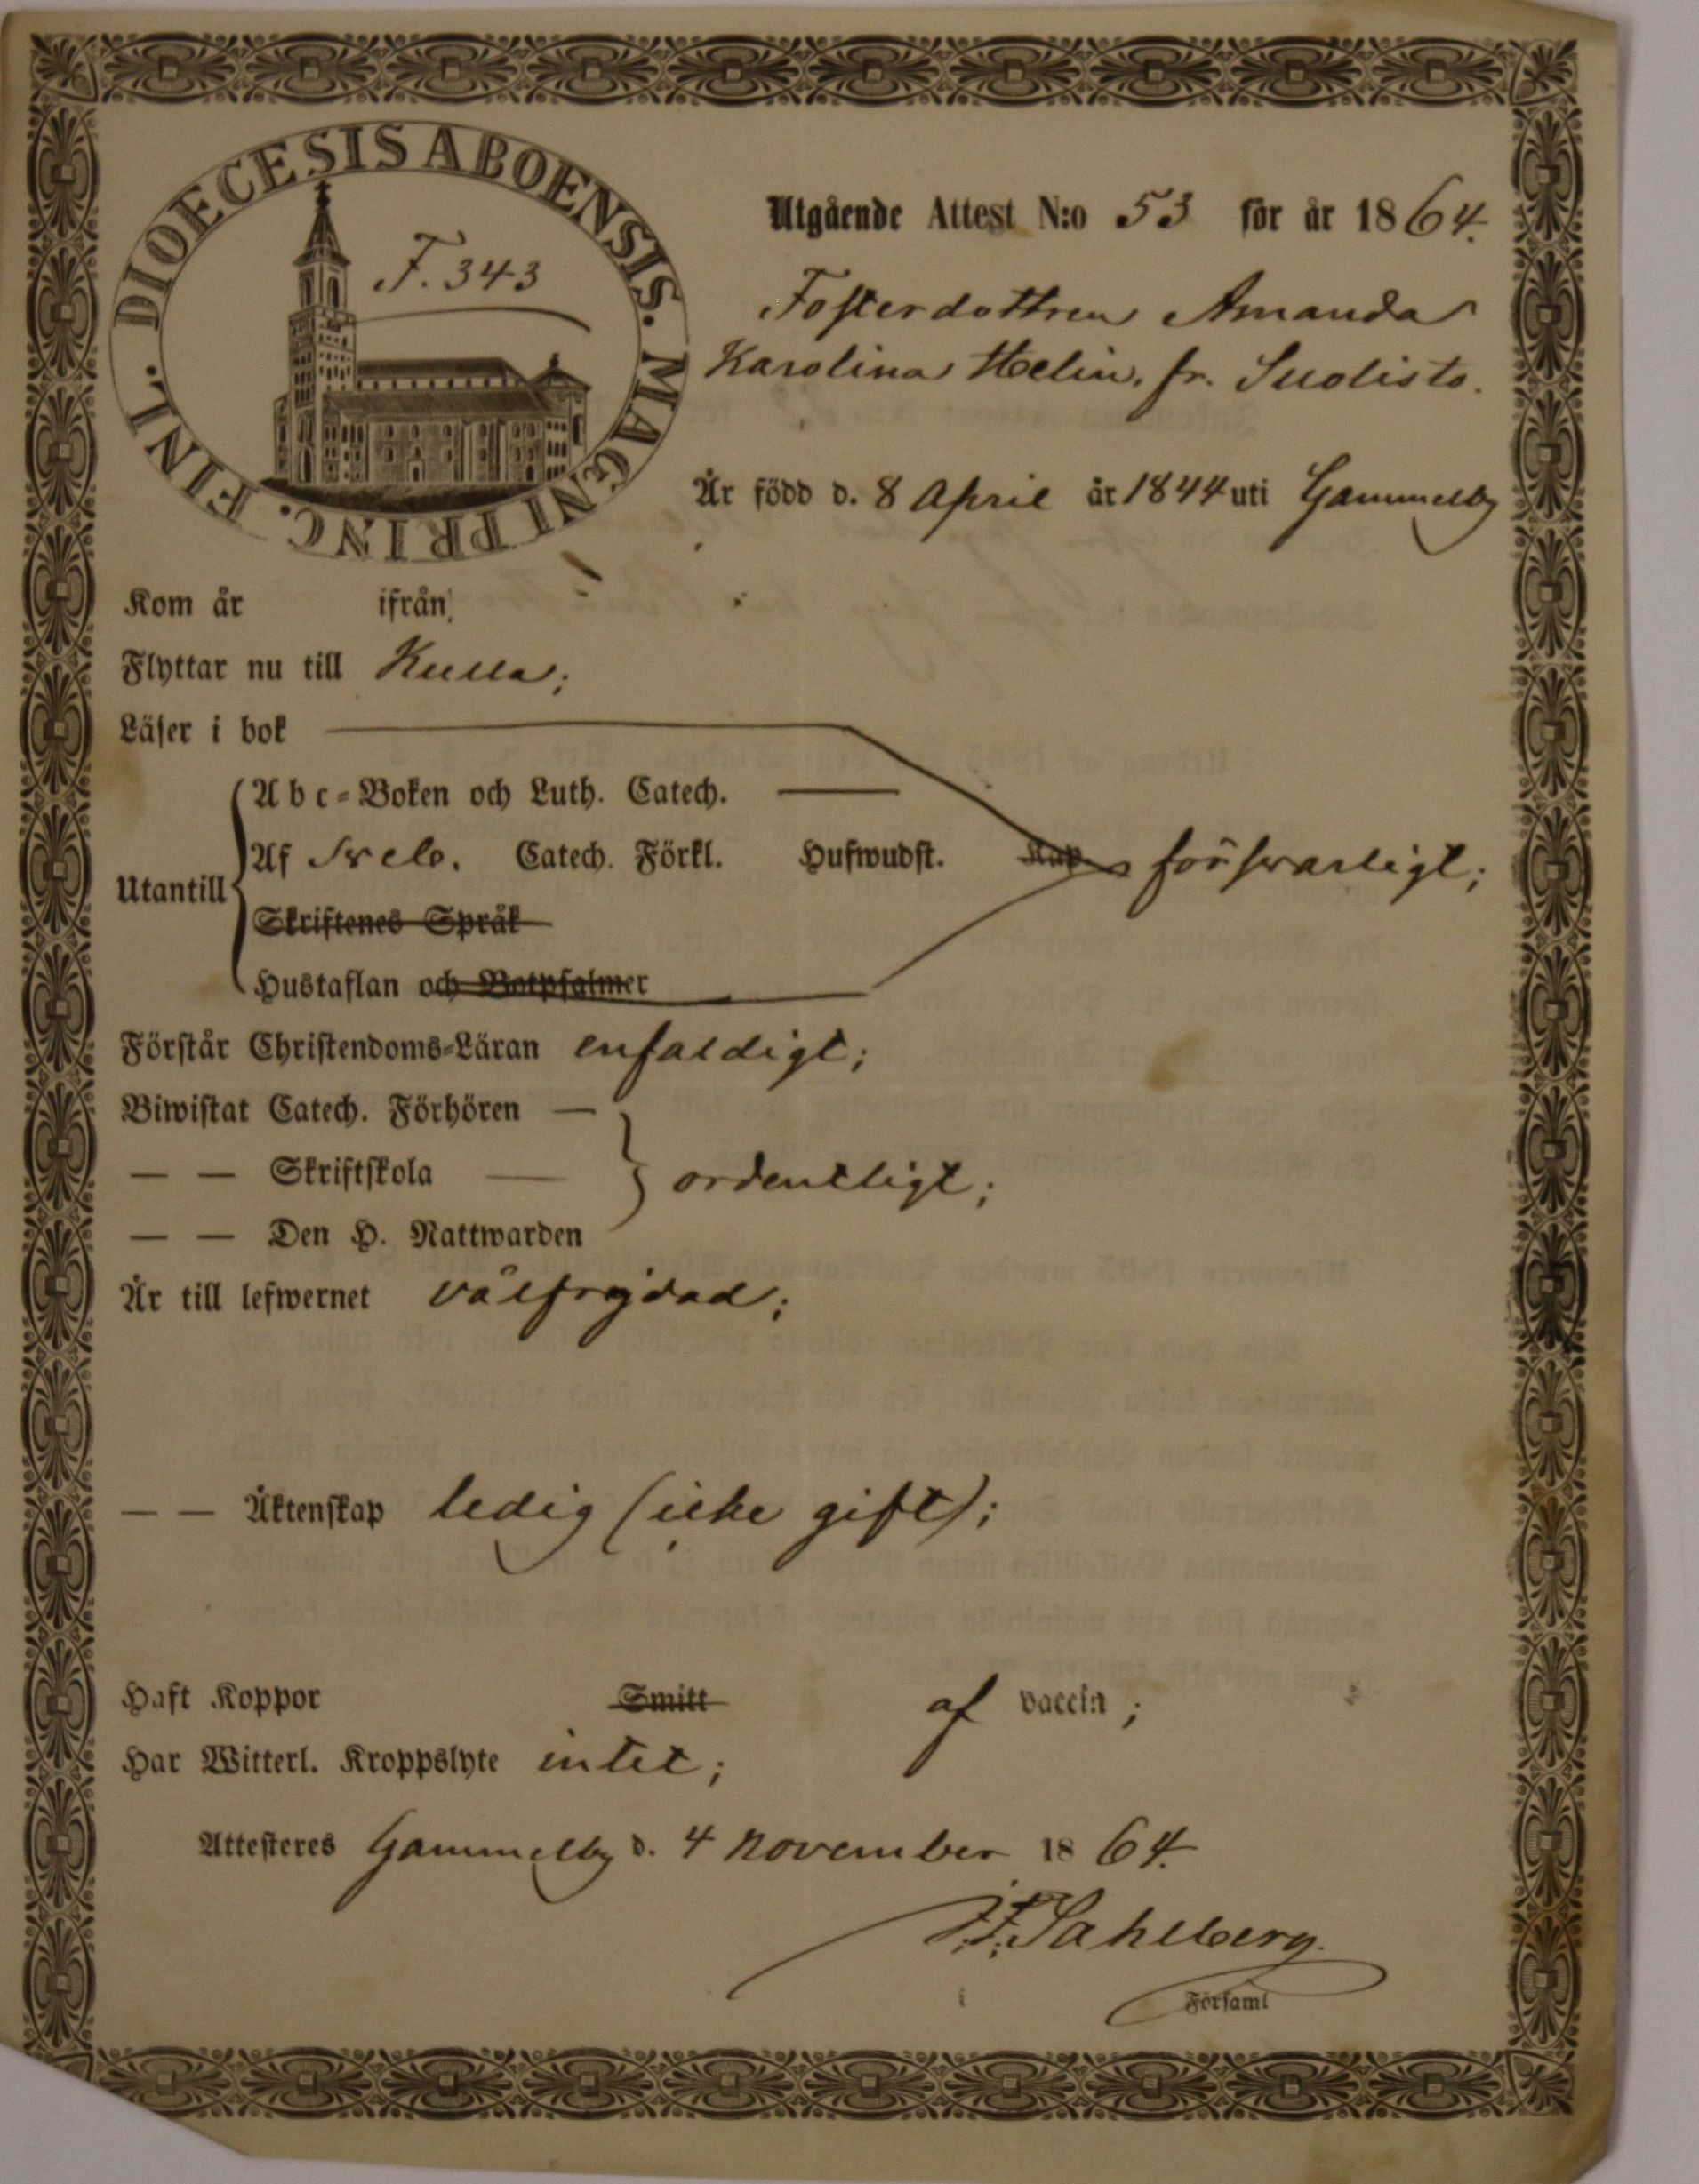 DIOECESIS ABOENSIS. MAGNI PRINC. FINL.
F. 343
Utgående Attest N:o 53 för år 1864.
Fosterdottren Amanda
Karolina Helin, fr. Suolisto.
Är född d. 8 April år 1844 uti Gammelby
Kom år ifrån
Flyttar nu till Kulla;
Läser i bok
Abc=Boken och Luth. Catech.
Utantill
Af Sveb. Catech. Förkl. Hufwudst. Kap. försvarligt;
Skriftenes Språk
Hustaflan och Botpsalmer
Förstår Christendoms=Läran enfaldigt;
Biwistat Catech. Förhören —
— — Skriftskola — ordentligt;
— — Den H. Nattwarden
Är till lefwernet välfrejdad;
— — Äktenskap ledig (icke gift);
Haft Koppor Smitt af vaccin;
Har Witterl. Kroppslyte intet;
Attesteres Gammelby d. 4 November 1864.
Sahlberg.
i Församl